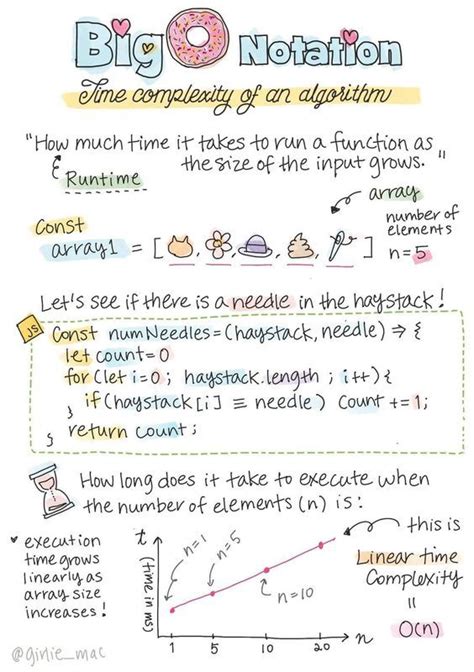 Big O Notation
Time complexity of an algorithm
"How much time it takes to run a function as
the size of the input grows."
Runtime
array
Const
array1 = [ , , , , ]
number of
elements
n=5
Let's see if there is a needle in the haystack!
JS
Const numNeedles = (haystack, needle) ⇒ {
let count = 0
for (let i = 0 ; haystack.length ; i++) {
if (haystack[i] ≡ needle) Count += 1;
}
return count;
}
How long does it take to execute when
the number of elements (n) is:
execution
time grows
linearly as
array size
increases!
t
(time in ms)
n=1
n=5
n=10
1 5 10 20 n
this is
Linear time
Complexity
=
O(n)
@girlie_mac